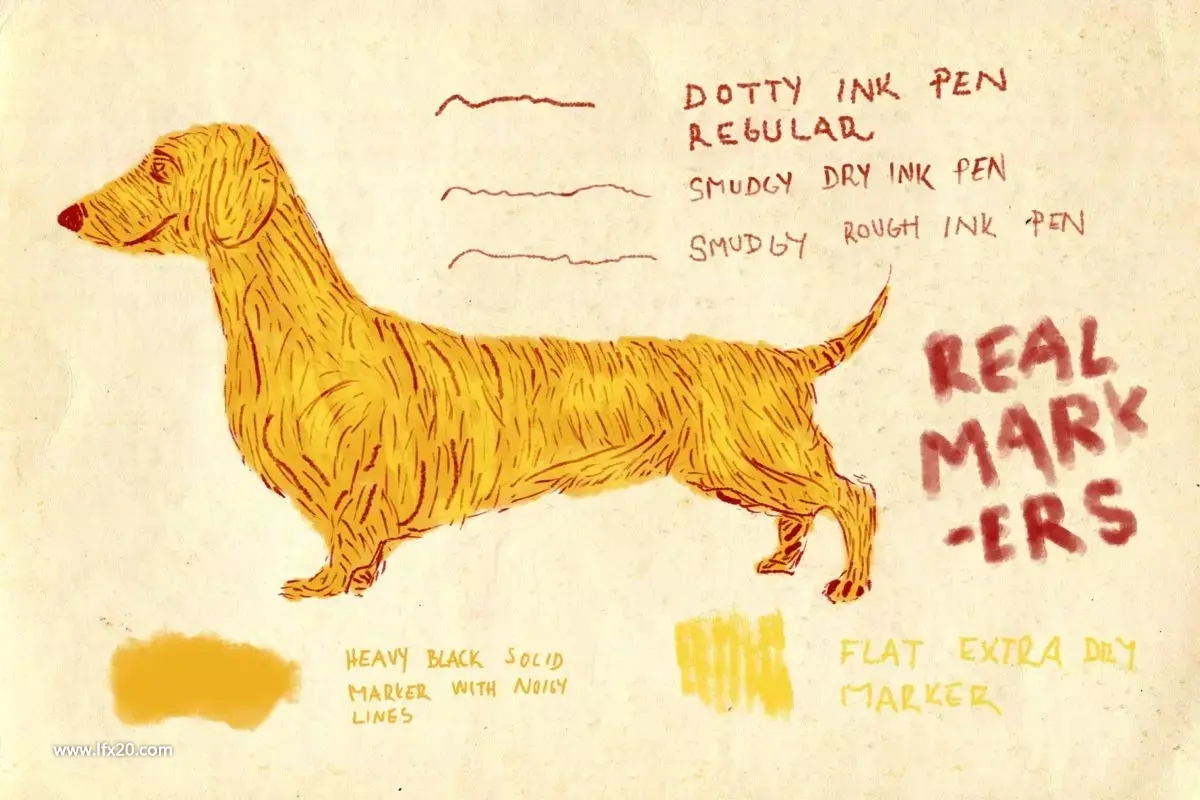 DOTTY INK PEN
REGULAR
SMUDGY DRY INK PEN
SMUDGY ROUGH INK PEN
REAL
MARK
-ERS
HEAVY BLACK SOLID
MARKER WITH NOISY
LINES
FLAT EXTRA DRY
MARKER
www.lfx20.com